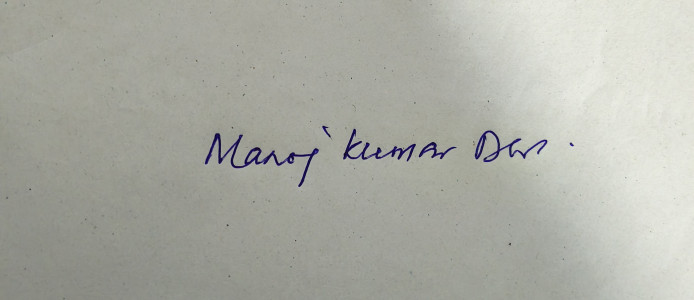 Manoj Kumar Das.